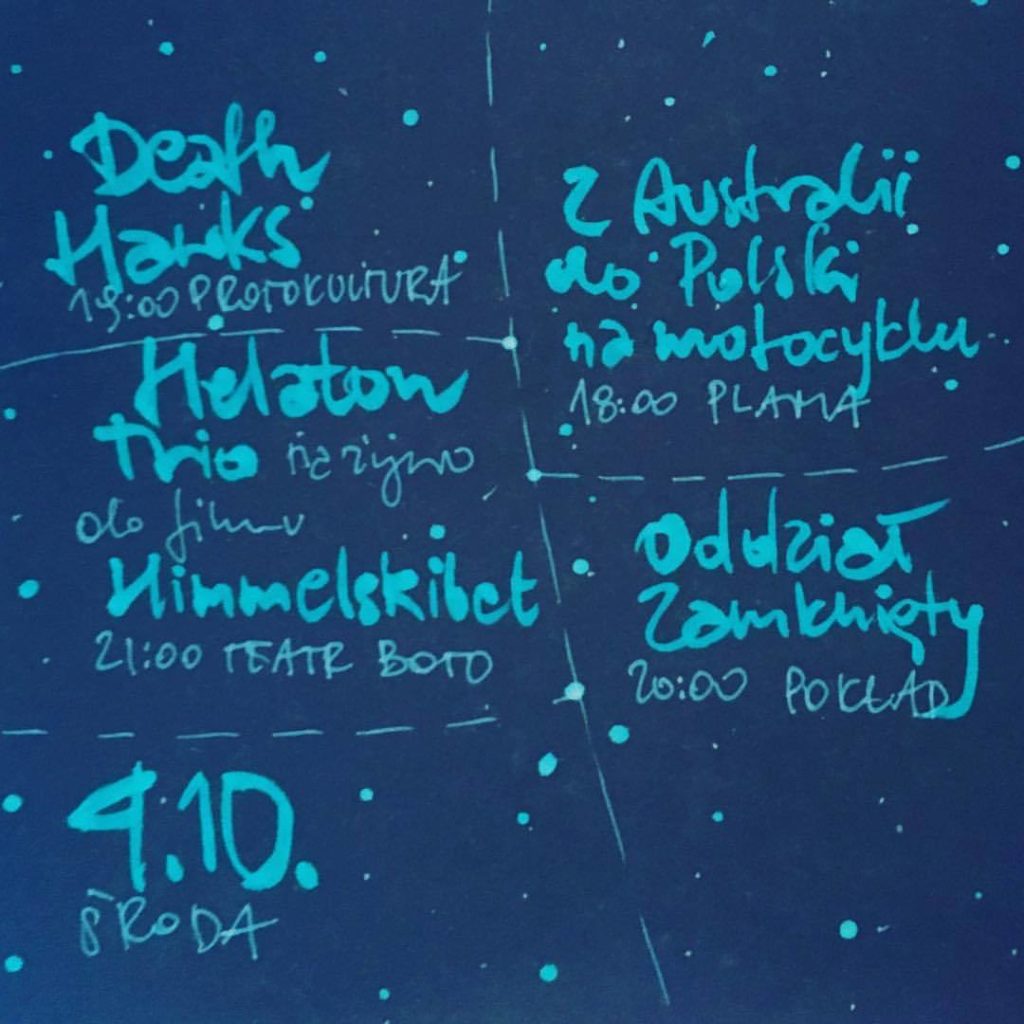 Death
Hawks
19:00 PROTOKULTURA
Helatow
Trio na żywo
do filmu
Himmelskibet
21:00 TEATR BOTO
4.10.
ŚRODA
Z Australii
do Polski
na motocyklu
18:00 PLAMA
Oddział
Zamknięty
20:00 POKŁAD